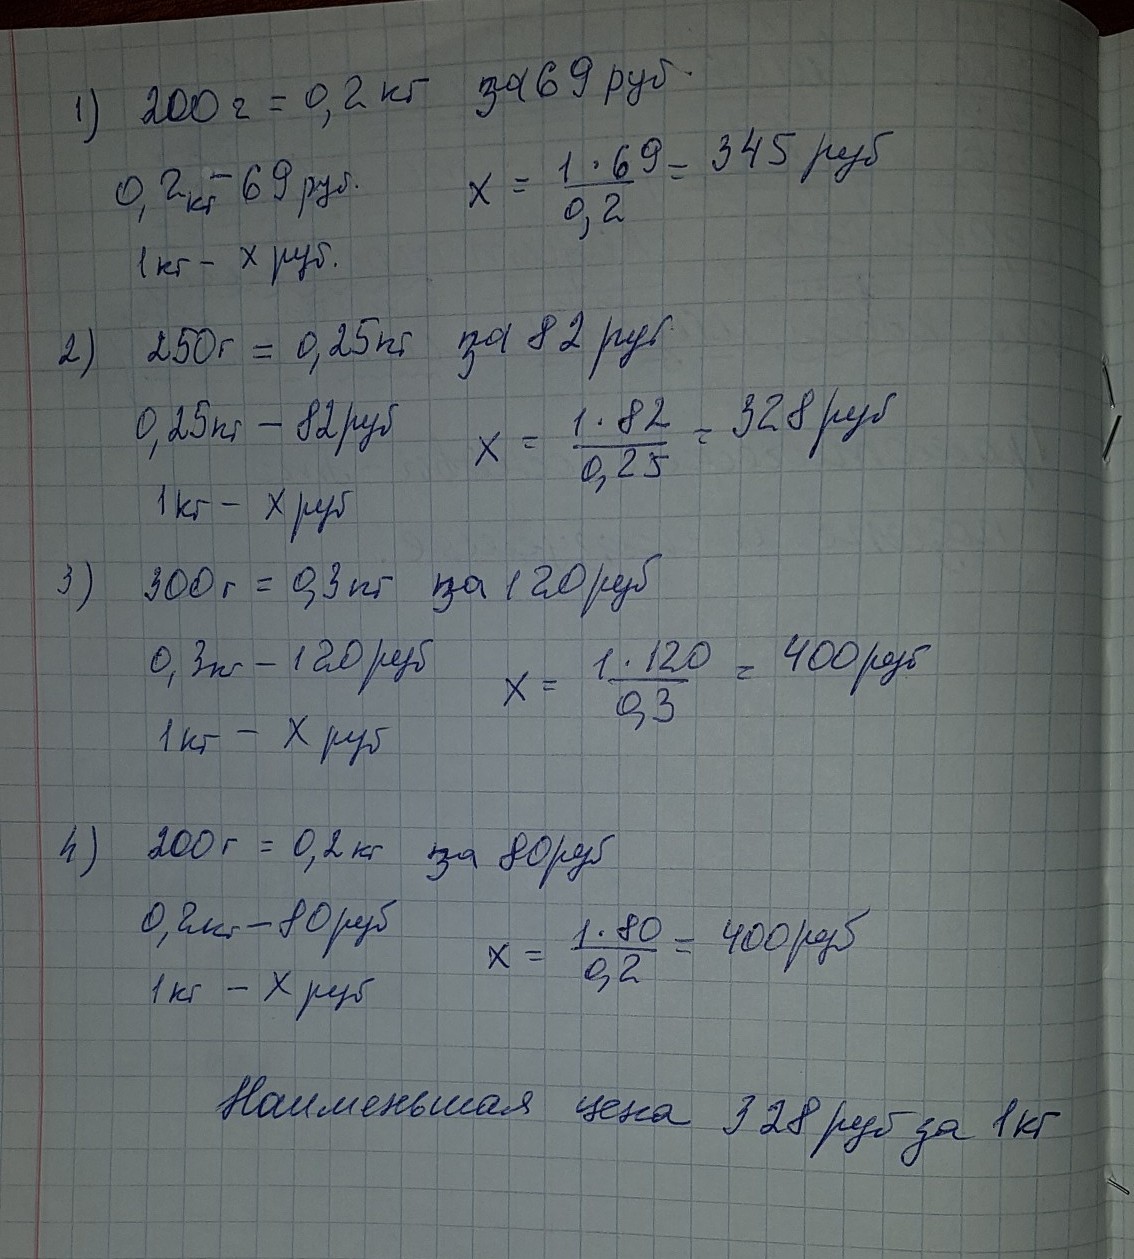 1) 200г = 0,2кг за 69 руб.
0,2кг - 69 руб. x = 1·69/0,2 = 345 руб
1кг - x руб.
2) 250г = 0,25кг за 82 руб
0,25кг - 82 руб x = 1·82/0,25 = 328 руб
1кг - x руб
3) 300г = 0,3кг за 120 руб
0,3кг - 120 руб x = 1·120/0,3 = 400 руб
1кг - x руб
4) 200г = 0,2кг за 80 руб
0,2кг - 80 руб x = 1·80/0,2 = 400 руб
1кг - x руб
Наименьшая цена 328 руб за 1кг